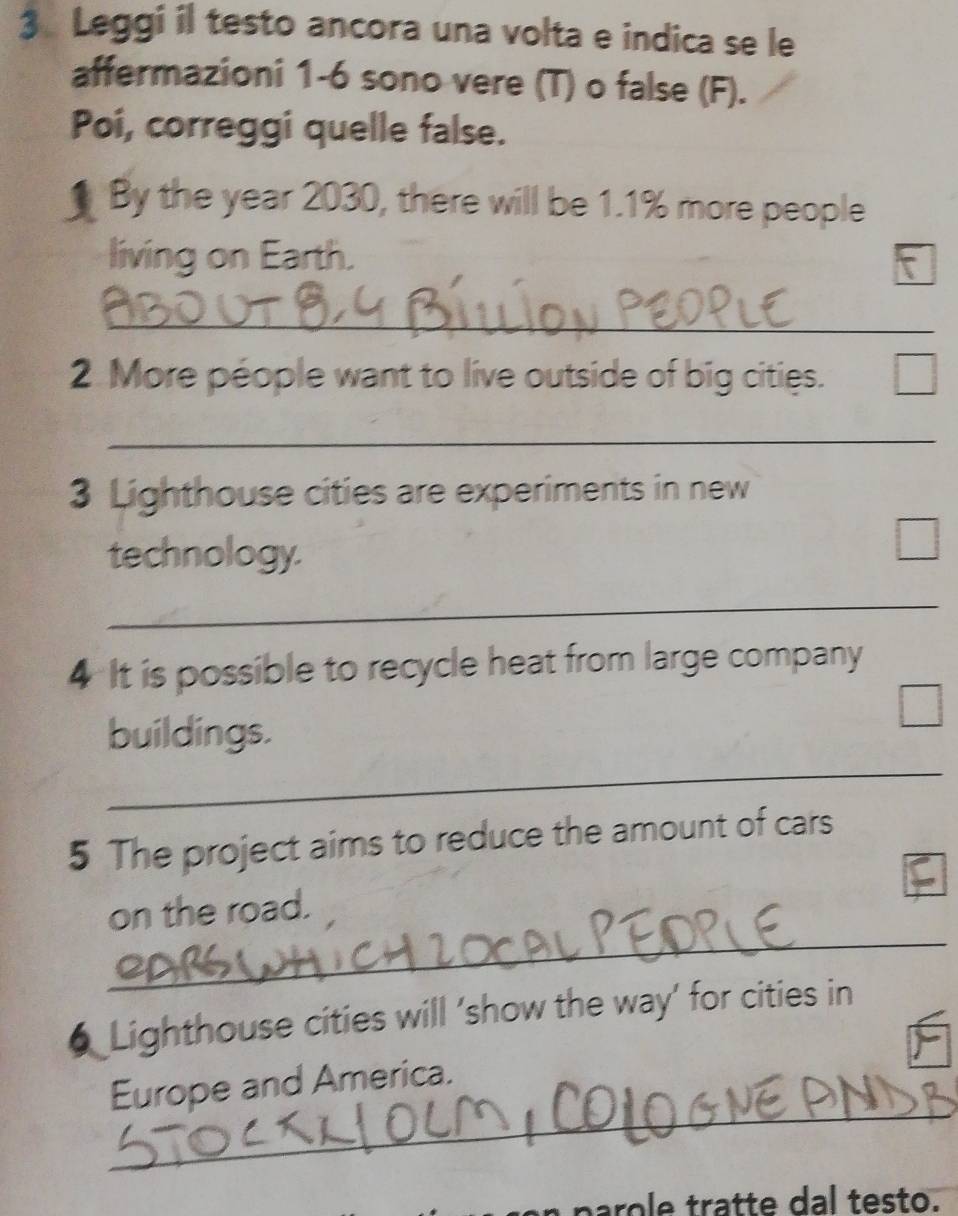 3 Leggi il testo ancora una volta e indica se le
affermazioni 1-6 sono vere (T) o false (F).
Poi, correggi quelle false.
1 By the year 2030, there will be 1.1% more people
living on Earth. F
ABOUT 8,4 BILLION PEOPLE
2 More people want to live outside of big cities.
3 Lighthouse cities are experiments in new
technology.
4 It is possible to recycle heat from large company
buildings.
5 The project aims to reduce the amount of cars
on the road. F
CARS WHICH LOCAL PEOPLE
6 Lighthouse cities will 'show the way' for cities in
Europe and America. F
STOCKHOLM, COLOGNE AND B
con parole tratte dal testo.